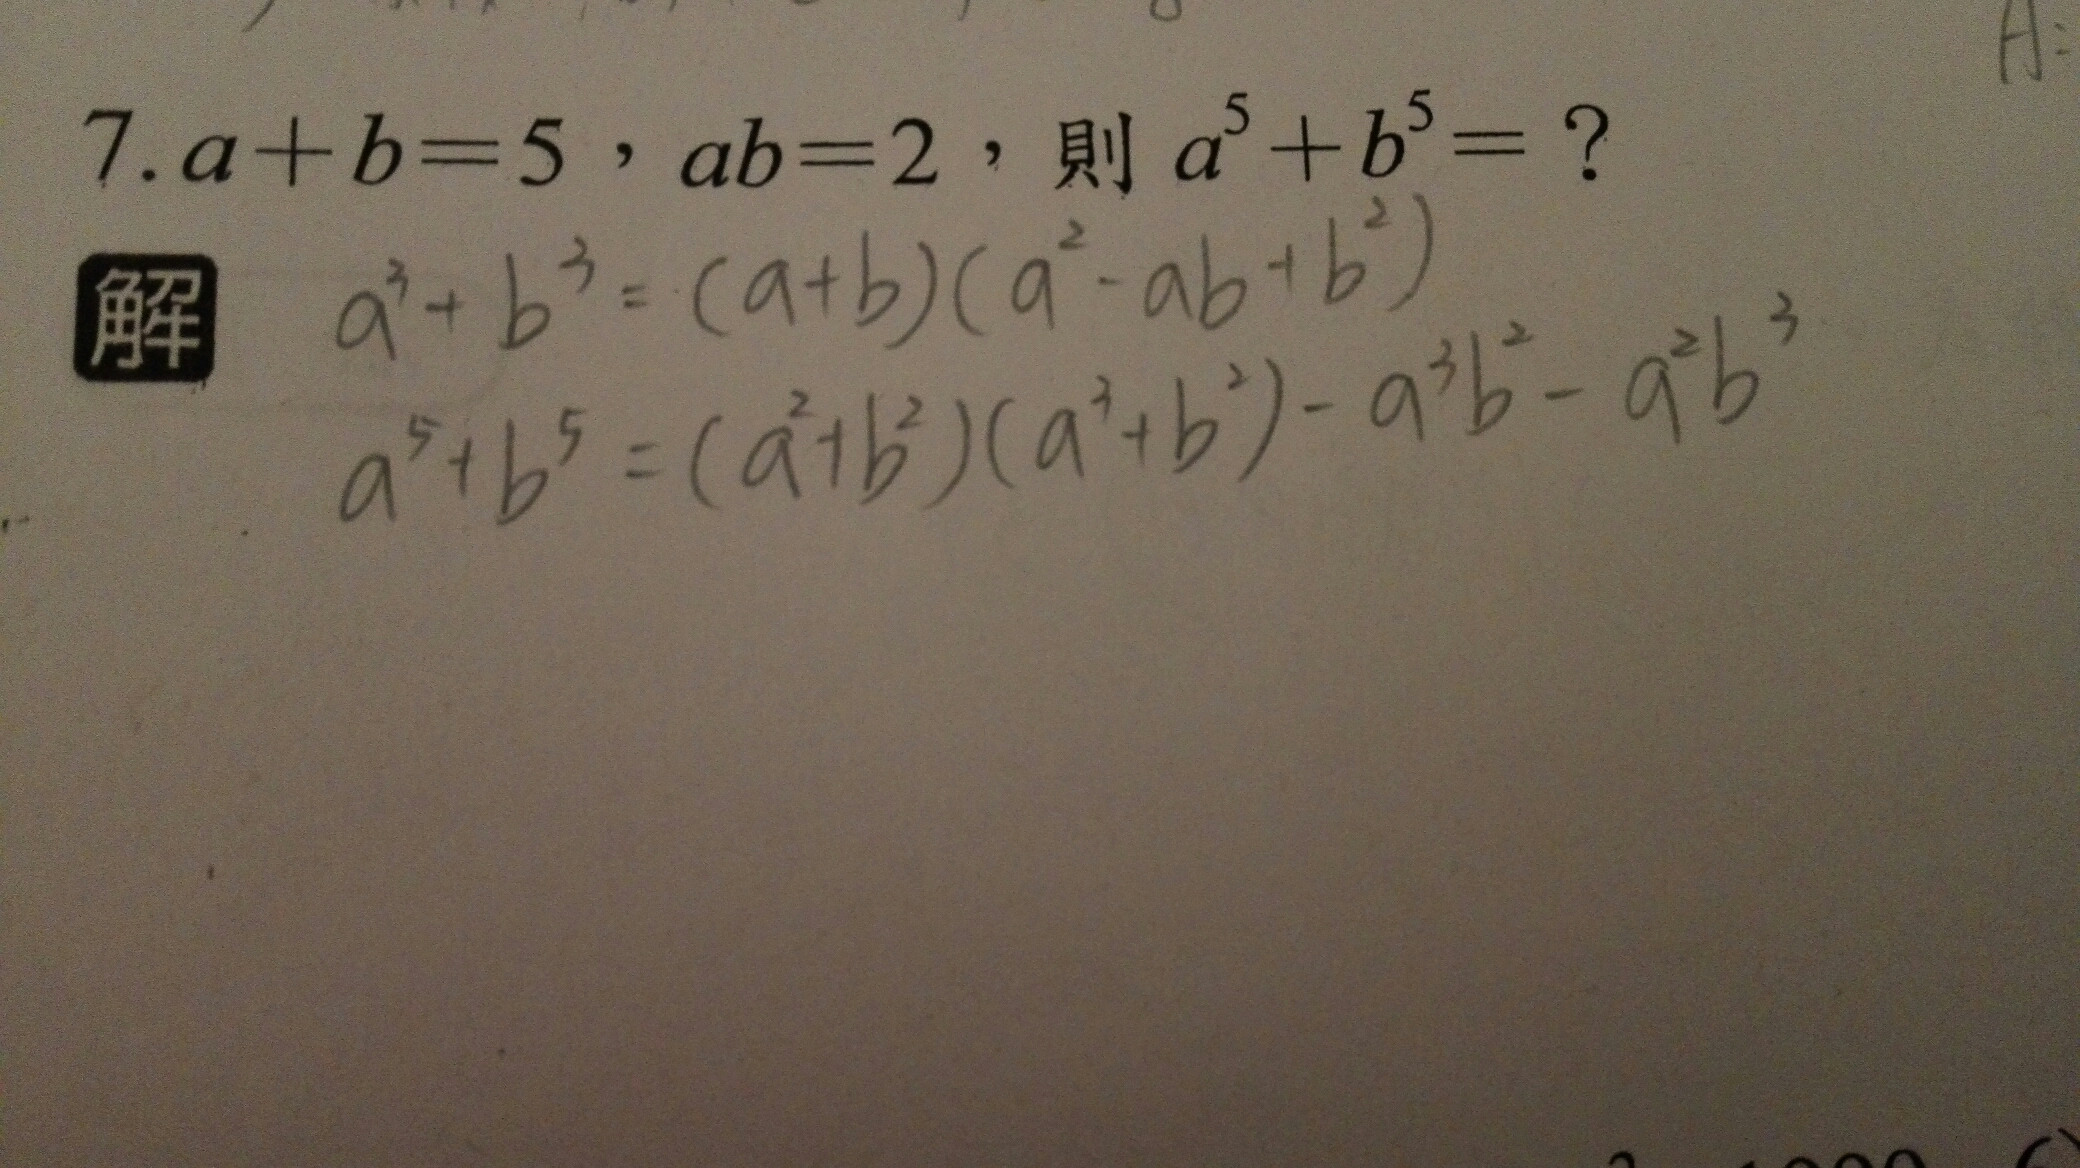 A:
7. a+b=5，ab=2，則 a⁵+b⁵=？
解 a³+b³=(a+b)(a²-ab+b²)
a⁵+b⁵=(a²+b²)(a³+b²)-a³b²-a²b³